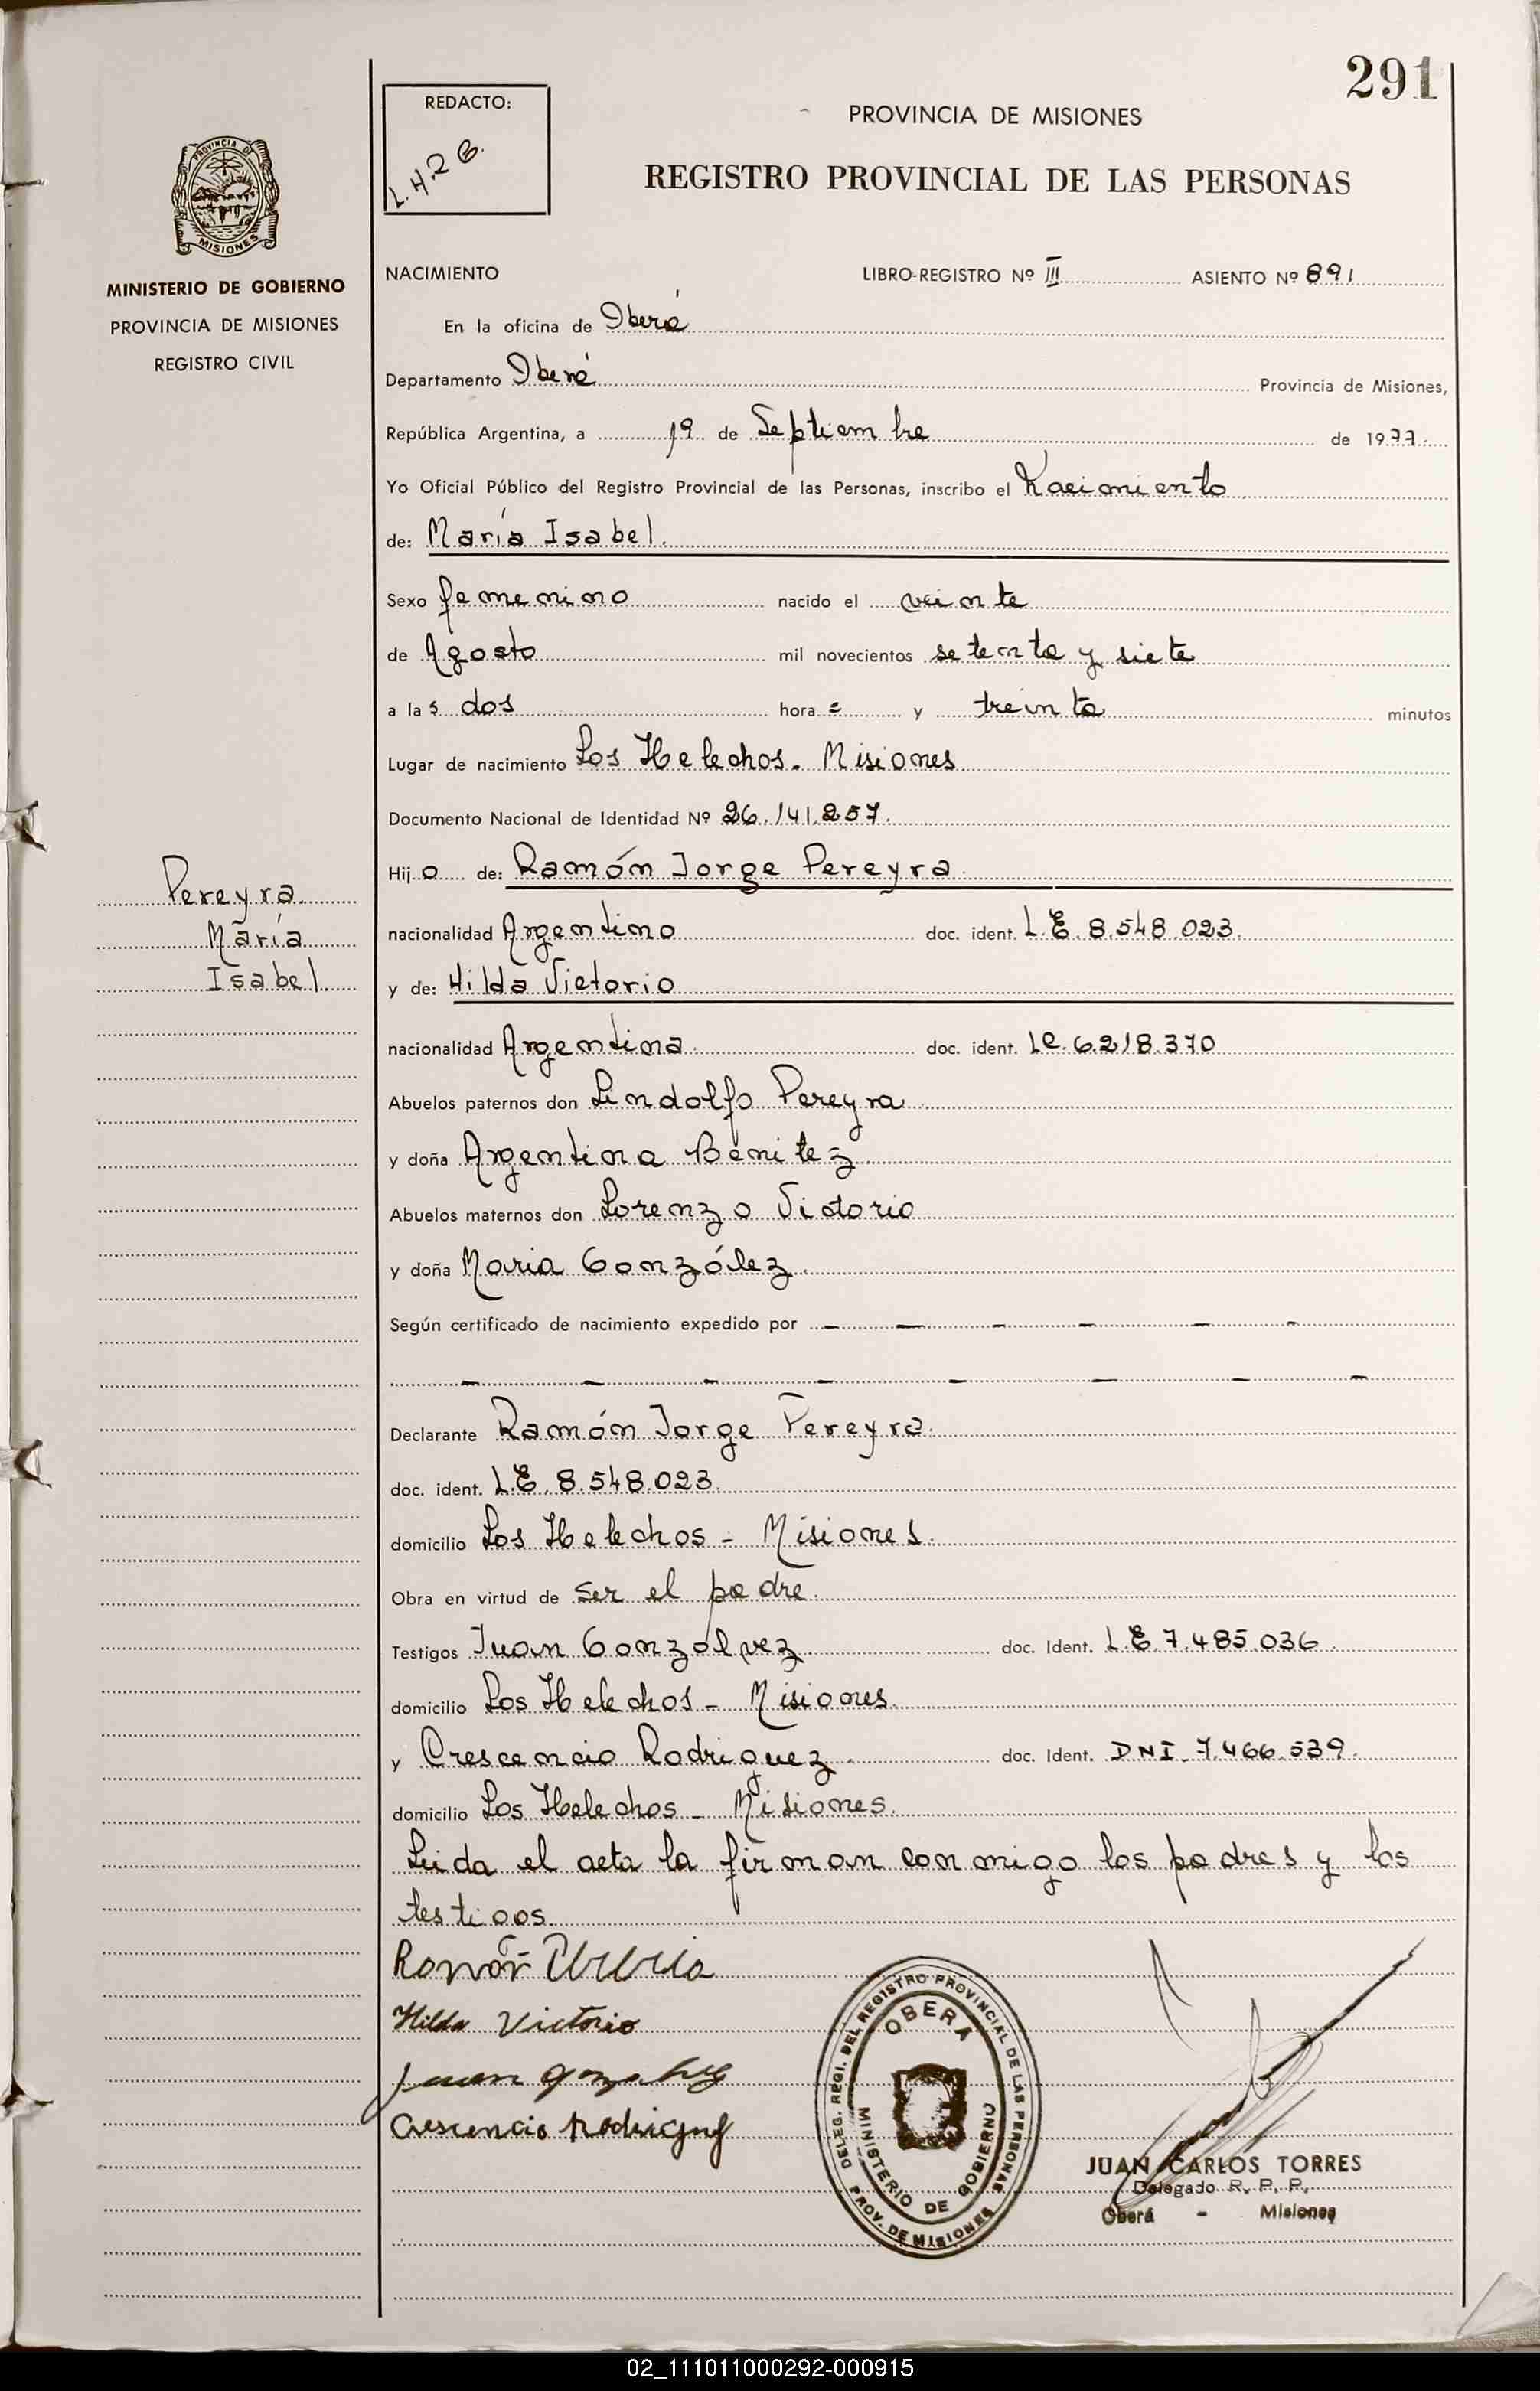 291
REDACTO:
L.H.R.G.
PROVINCIA DE MISIONES
REGISTRO PROVINCIAL DE LAS PERSONAS
PROVINCIA DE
MISIONES
MINISTERIO DE GOBIERNO
PROVINCIA DE MISIONES
REGISTRO CIVIL
NACIMIENTO LIBRO-REGISTRO Nº III ASIENTO Nº 891
En la oficina de Oberá
Departamento Oberá Provincia de Misiones,
República Argentina, a 19 de Septiembre de 1977.
Yo Oficial Público del Registro Provincial de las Personas, inscribo el Nacimiento
de: María Isabel.
Sexo femenino nacido el veinte
de Agosto mil novecientos setenta y siete
a las dos horas y treinta minutos
Lugar de nacimiento Los Helechos - Misiones
Documento Nacional de Identidad Nº 26.141.257.
Hijo de: Ramón Jorge Pereyra
Pereyra
María
Isabel.
nacionalidad Argentino doc. ident. L.E. 8.548.023.
y de: Hilda Victorio
nacionalidad Argentina. doc. ident. LC. 6.218.370
Abuelos paternos don Lindolfo Pereyra
y doña Argentina Benitez
Abuelos maternos don Lorenzo Victorio
y doña Maria González.
Según certificado de nacimiento expedido por — — — — — —
— — — — — — — —
Declarante Ramón Jorge Pereyra.
doc. ident. L.E. 8.548.023.
domicilio Los Helechos - Misiones.
Obra en virtud de ser el padre.
Testigos Juan Gonzalvez. doc. Ident. L.E. 7.485.036.
domicilio Los Helechos - Misiones.
y Crescencio Rodriguez. doc. Ident. DNI. 7.466.539.
domicilio Los Helechos - Misiones.
Leida el acta la firman conmigo los padres y los
testigos.
Ramón Pereyra
Hilda Victorio
Juan Gonzalvez
Crescencio Rodriguez
DELEG. REGI. DEL REGISTRO PROVINCIAL DE LAS PERSONAS
OBERA
MINISTERIO DE GOBIERNO
PROV. DE MISIONES
JUAN CARLOS TORRES
Delegado R. P. P.
Oberá - Misiones
02_111011000292-000915